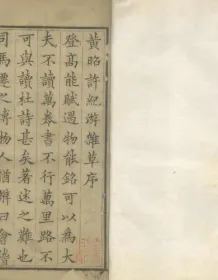 黃昭許紀游雜草序
登高能賦遇物能銘可以為大
夫不讀萬卷書不行萬里路不
可與讀杜詩甚矣著述之難也
司馬遷之博物人猶謂曰會讀